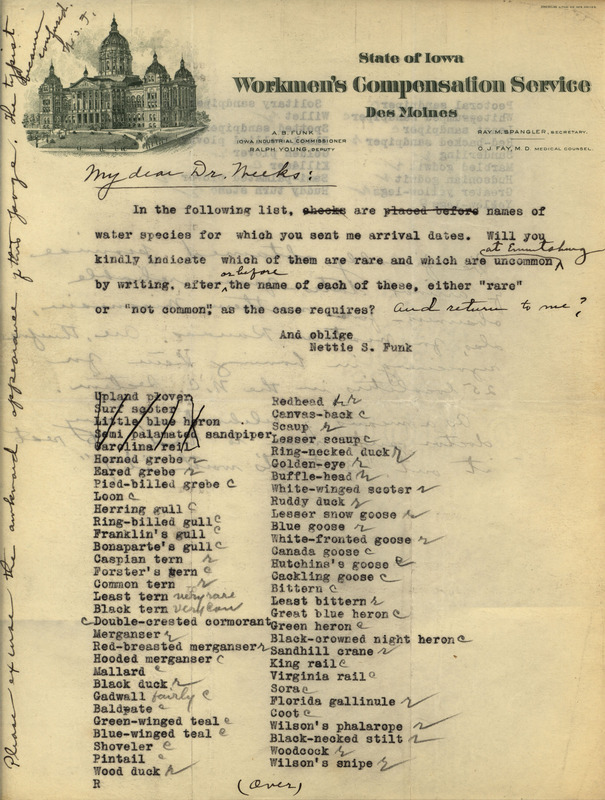 State of Iowa
Workmen's Compensation Service
Des Moines
A. B. FUNK
IOWA INDUSTRIAL COMMISSIONER
RALPH YOUNG, DEPUTY
RAY M. SPANGLER, SECRETARY.
O. J. FAY, M. D. MEDICAL COUNSEL.
My dear Dr. Weeks:
In the following list, checks are placed before names of
water species for which you sent me arrival dates. Will you
at Emmetsburg
kindly indicate which of them are rare and which are uncommon
or before
by writing, after the name of each of these, either "rare"
or "not common", as the case requires? And return to me?
And oblige
Nettie S. Funk
Upland plover
Surf scoter
Little blue heron
Semi palamated sandpiper
Carolina rail
Horned grebe r
Eared grebe r
Pied-billed grebe c
Loon c
Herring gull c
Ring-billed gull c
Franklin's gull c
Bonaparte's gull c
Caspian tern r
Forster's tern c
Common tern r
Least tern very rare
Black tern very com
c Double-crested cormorant
Merganser r
Red-breasted merganser r
Hooded merganser c
Mallard c
Black duck r
Gadwall fairly c
Baldpate c
Green-winged teal c
Blue-winged teal c
Shoveler c
Pintail c
Wood duck r
R
Redhead r
Canvas-back c
Scaup r
Lesser scaup c
Ring-necked duck r
Golden-eye r
Buffle-head r
White-winged scoter r
Ruddy duck r
Lesser snow goose r
Blue goose r
White-fronted goose r
Canada goose c
Hutchins's goose c
Cackling goose c
Bittern c
Least bittern r
Great blue heron c
Green heron c
Black-crowned night heron c
Sandhill crane r
King rail c
Virginia rail c
Sora c
Florida gallinule r
Coot c
Wilson's phalarope r
Black-necked stilt r
Woodcock r
Wilson's snipe r
(Over)
Please excuse the awkward appearance of this page. The typist
became
confused.
N. S. F.